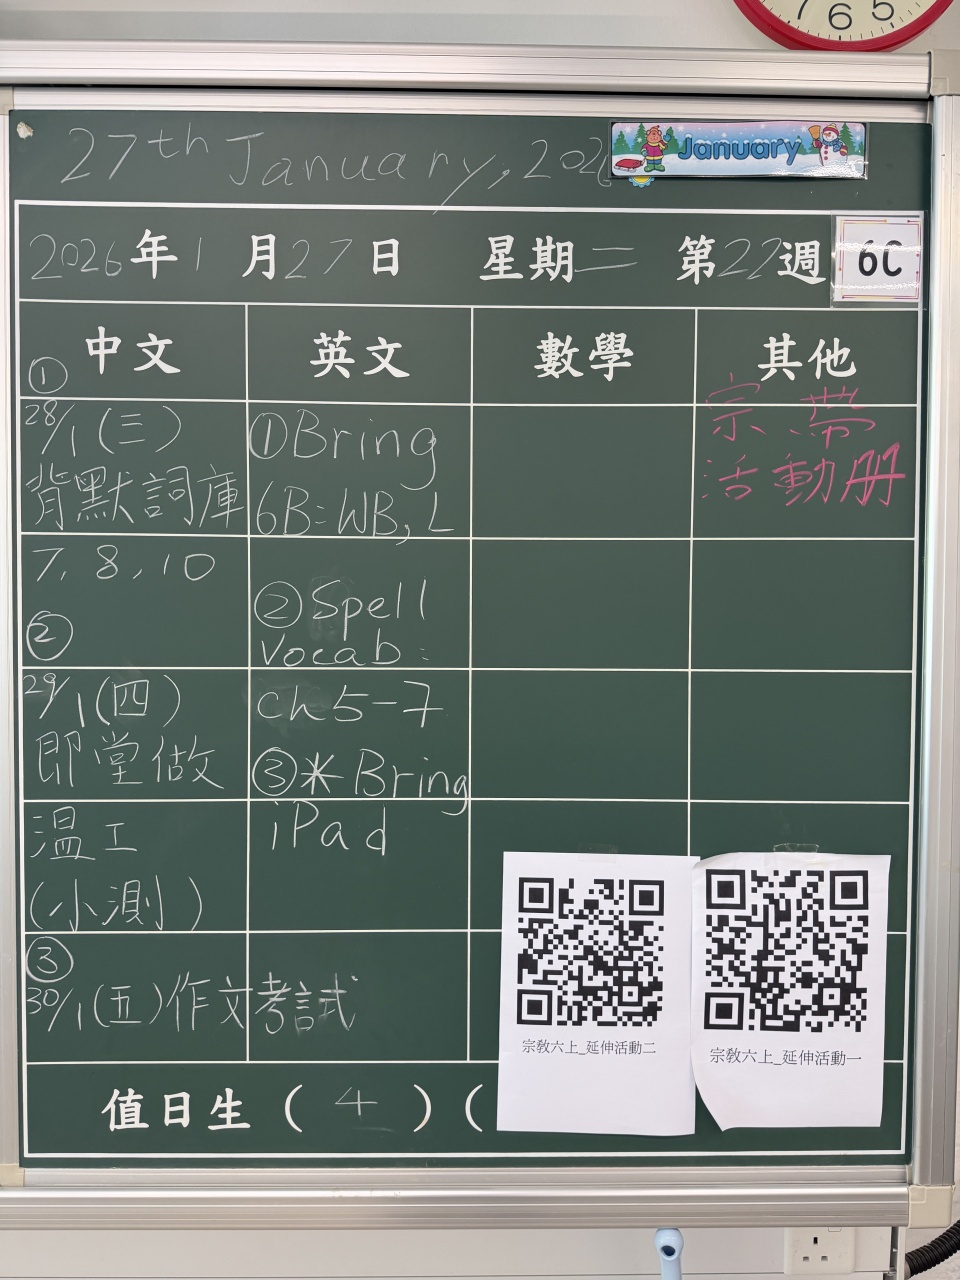 7 6 5
27th January, 2026
January
2026年1月27日 星期二 第22週
6C
中文 英文 數學 其他
①
28/1(三)
背默詞庫
7, 8, 10
②
29/1(四)
即堂做
温工
(小測)
③
30/1(五)作文考試
①Bring
6B:WB, L
②Spell
Vocab:
Ch5-7
③*Bring
iPad
宗帶
活動册
宗教六上_延伸活動二
宗教六上_延伸活動一
值日生(4)(